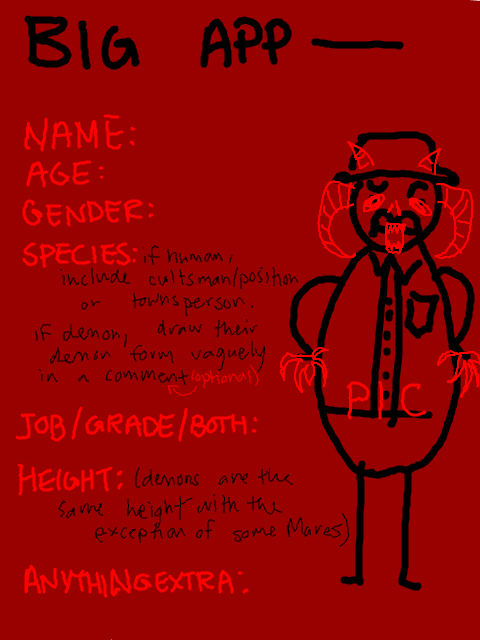 BIG APP —
NAME:
AGE:
GENDER:
SPECIES: if human,
include cultsman/position
or townsperson.
if demon, draw their
demon form vaguely
in a comment (optional)
PIC
JOB/GRADE/BOTH:
HEIGHT: (demons are the
same height with the
exception of some Mares)
ANYTHING EXTRA: